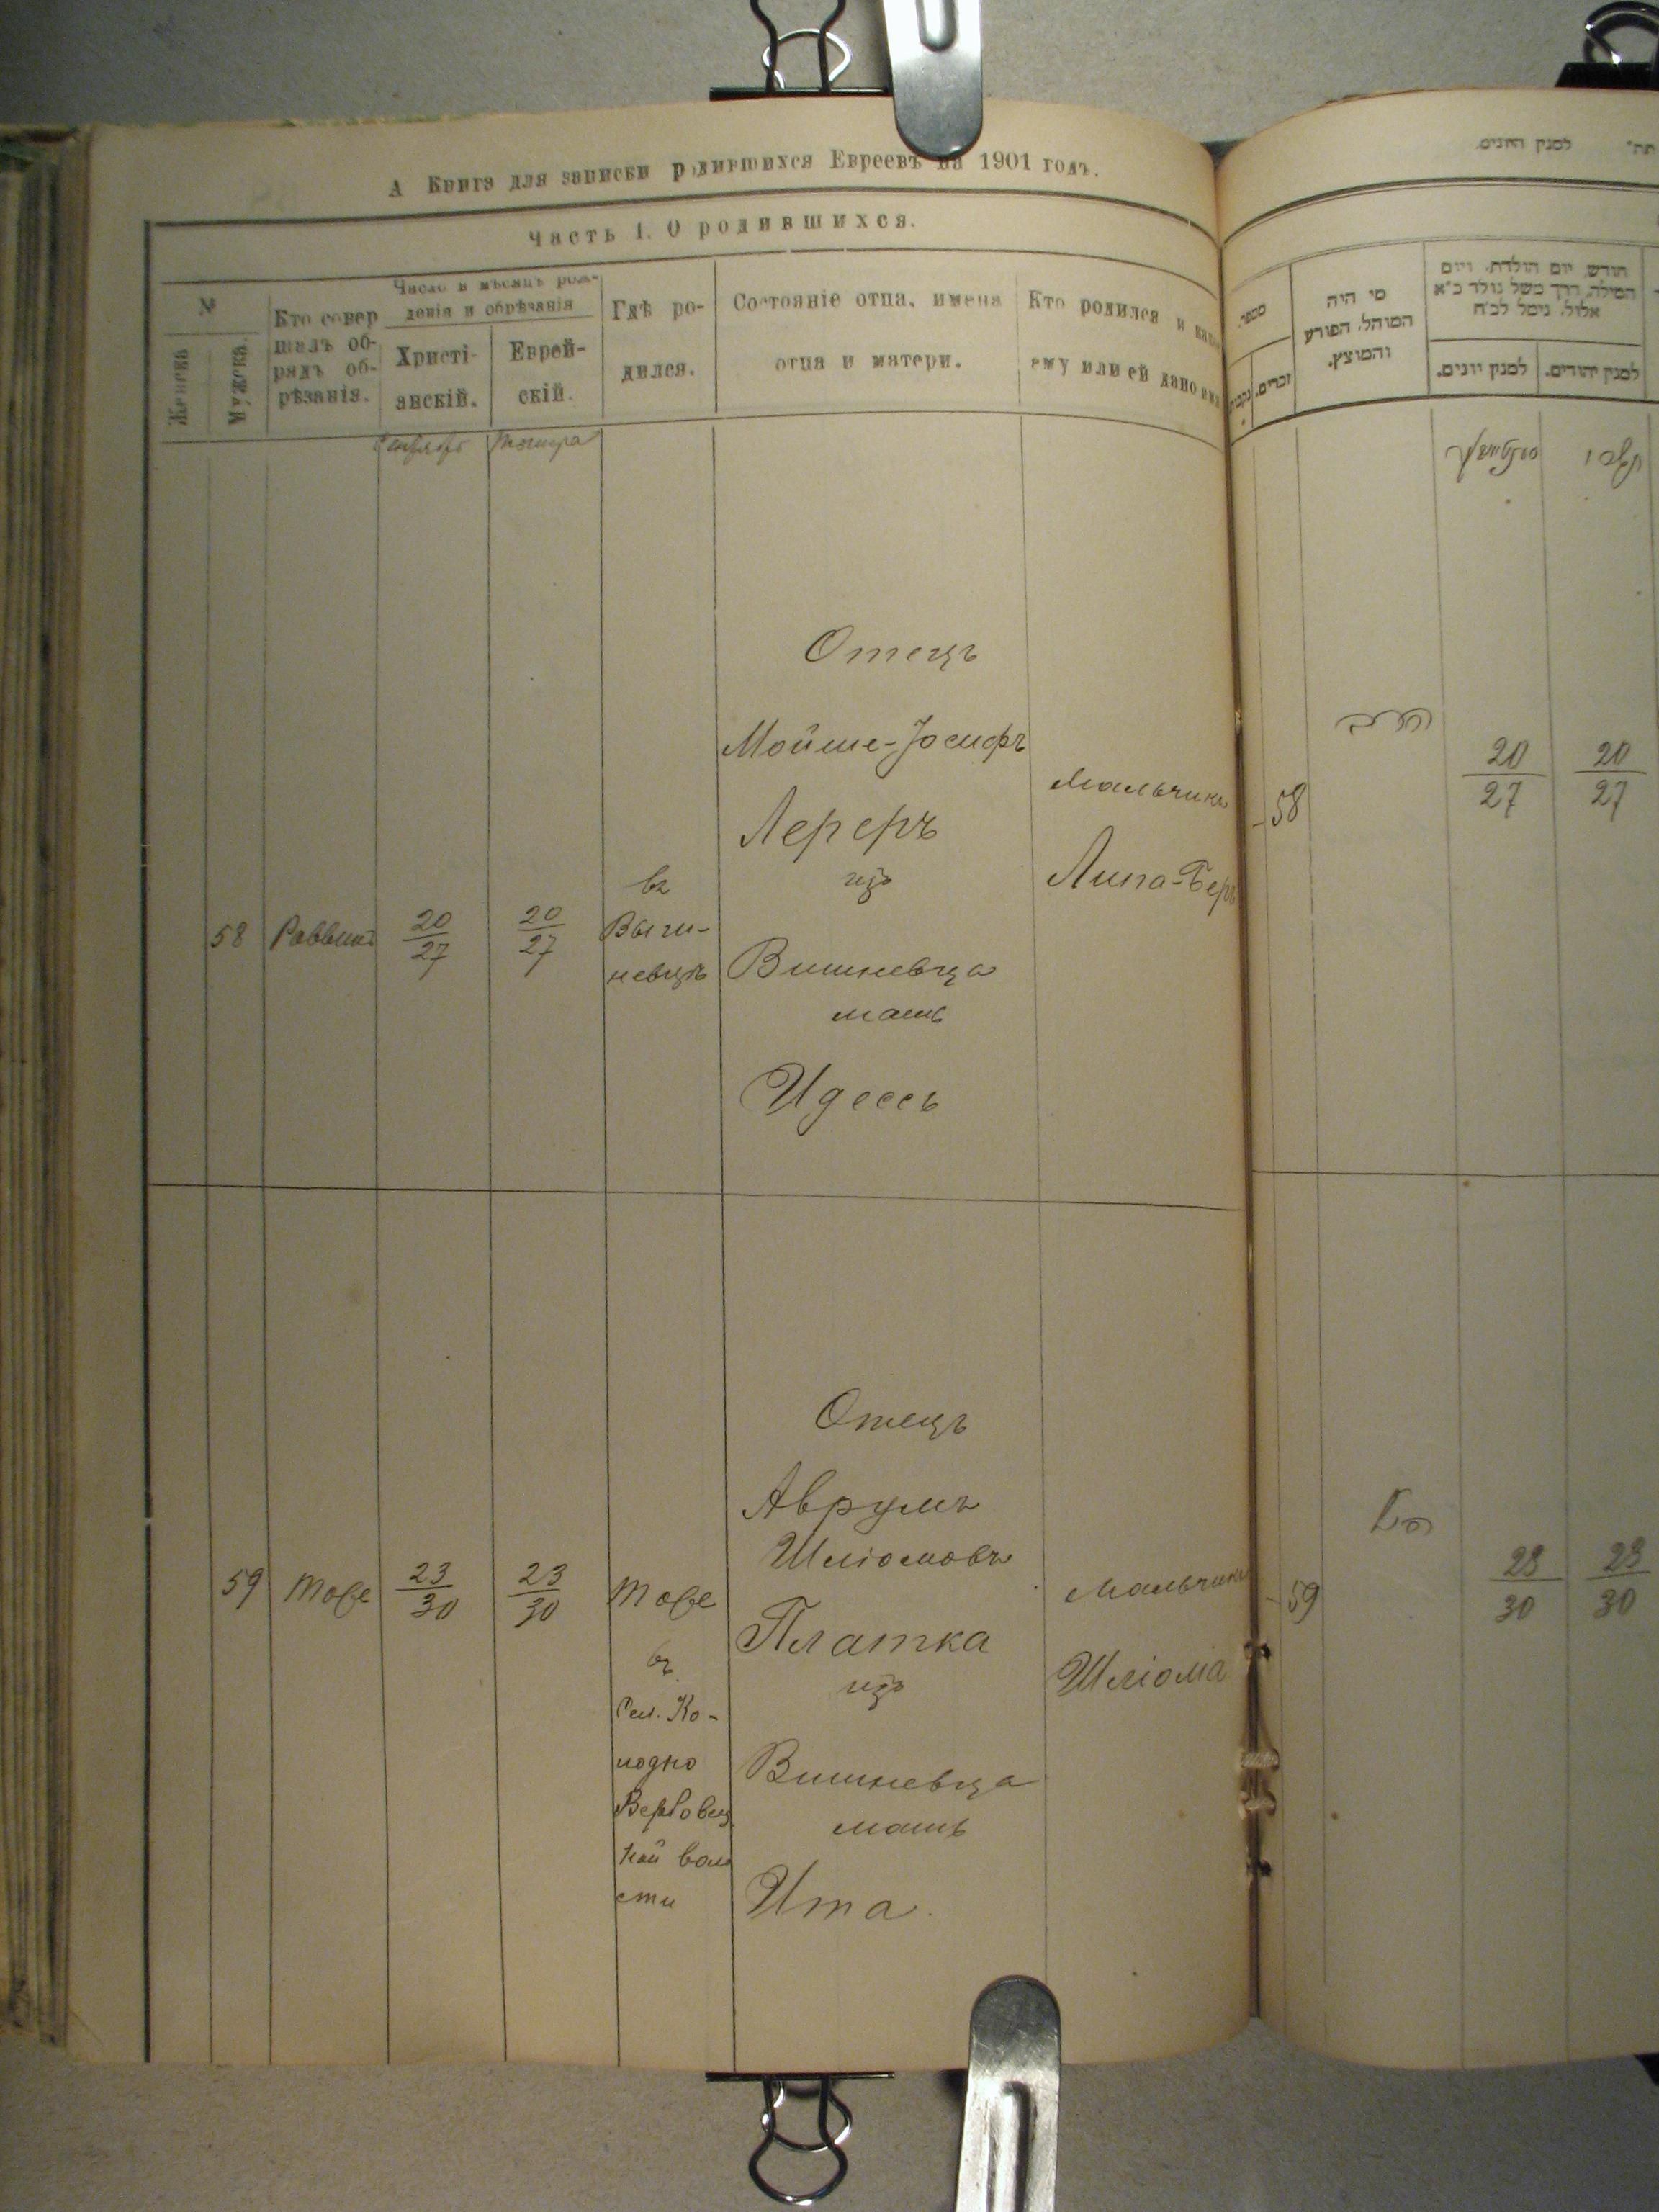 А Книга для записки родившихся Евреевъ на 1901 годъ.
Часть I. О родившихся.
№
Женска
Мужска.
Кто совер
шалъ об-
рядъ об-
рѣзанія.
Число и мѣсяцъ рож-
денія и обрѣзанія
Христі-
анскій.
Еврей-
скій.
Гдѣ ро-
дился.
Состояніе отца, имена
отца и матери.
Кто родился и како
ему или ей дано имя
Сентябрь
Тишра
58
Раввинъ
20
27
20
27
въ
Выш-
невцѣ
Отецъ
Мойше-Іосифъ
Лереръ
изъ
Вишневца
мать
Идессь
Мальчикъ
Липа-Беръ
59
Тоже
23
30
23
30
Тоже
въ
Сел. Ко-
лодно
Вербовец
кой вол
сти
Отецъ
Аврумъ
Шліомовъ
Платка
изъ
Вишневца
мать
Ита.
Мальчикъ
Шліома
למנין היונים.
מספר.
נקבות
זכרים.
מי היה
המוהל. הפורע
והמוצץ.
חודש, יום הולדת, ויום
המילה, דרך משל נולד כ"א
אלול. נימל לכ"ח
למנין יונים.
למנין יהודים.
תשרי
58
הרב
20
27
20
27
59
23
30
23
30